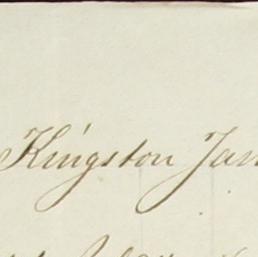 Kingston Jan